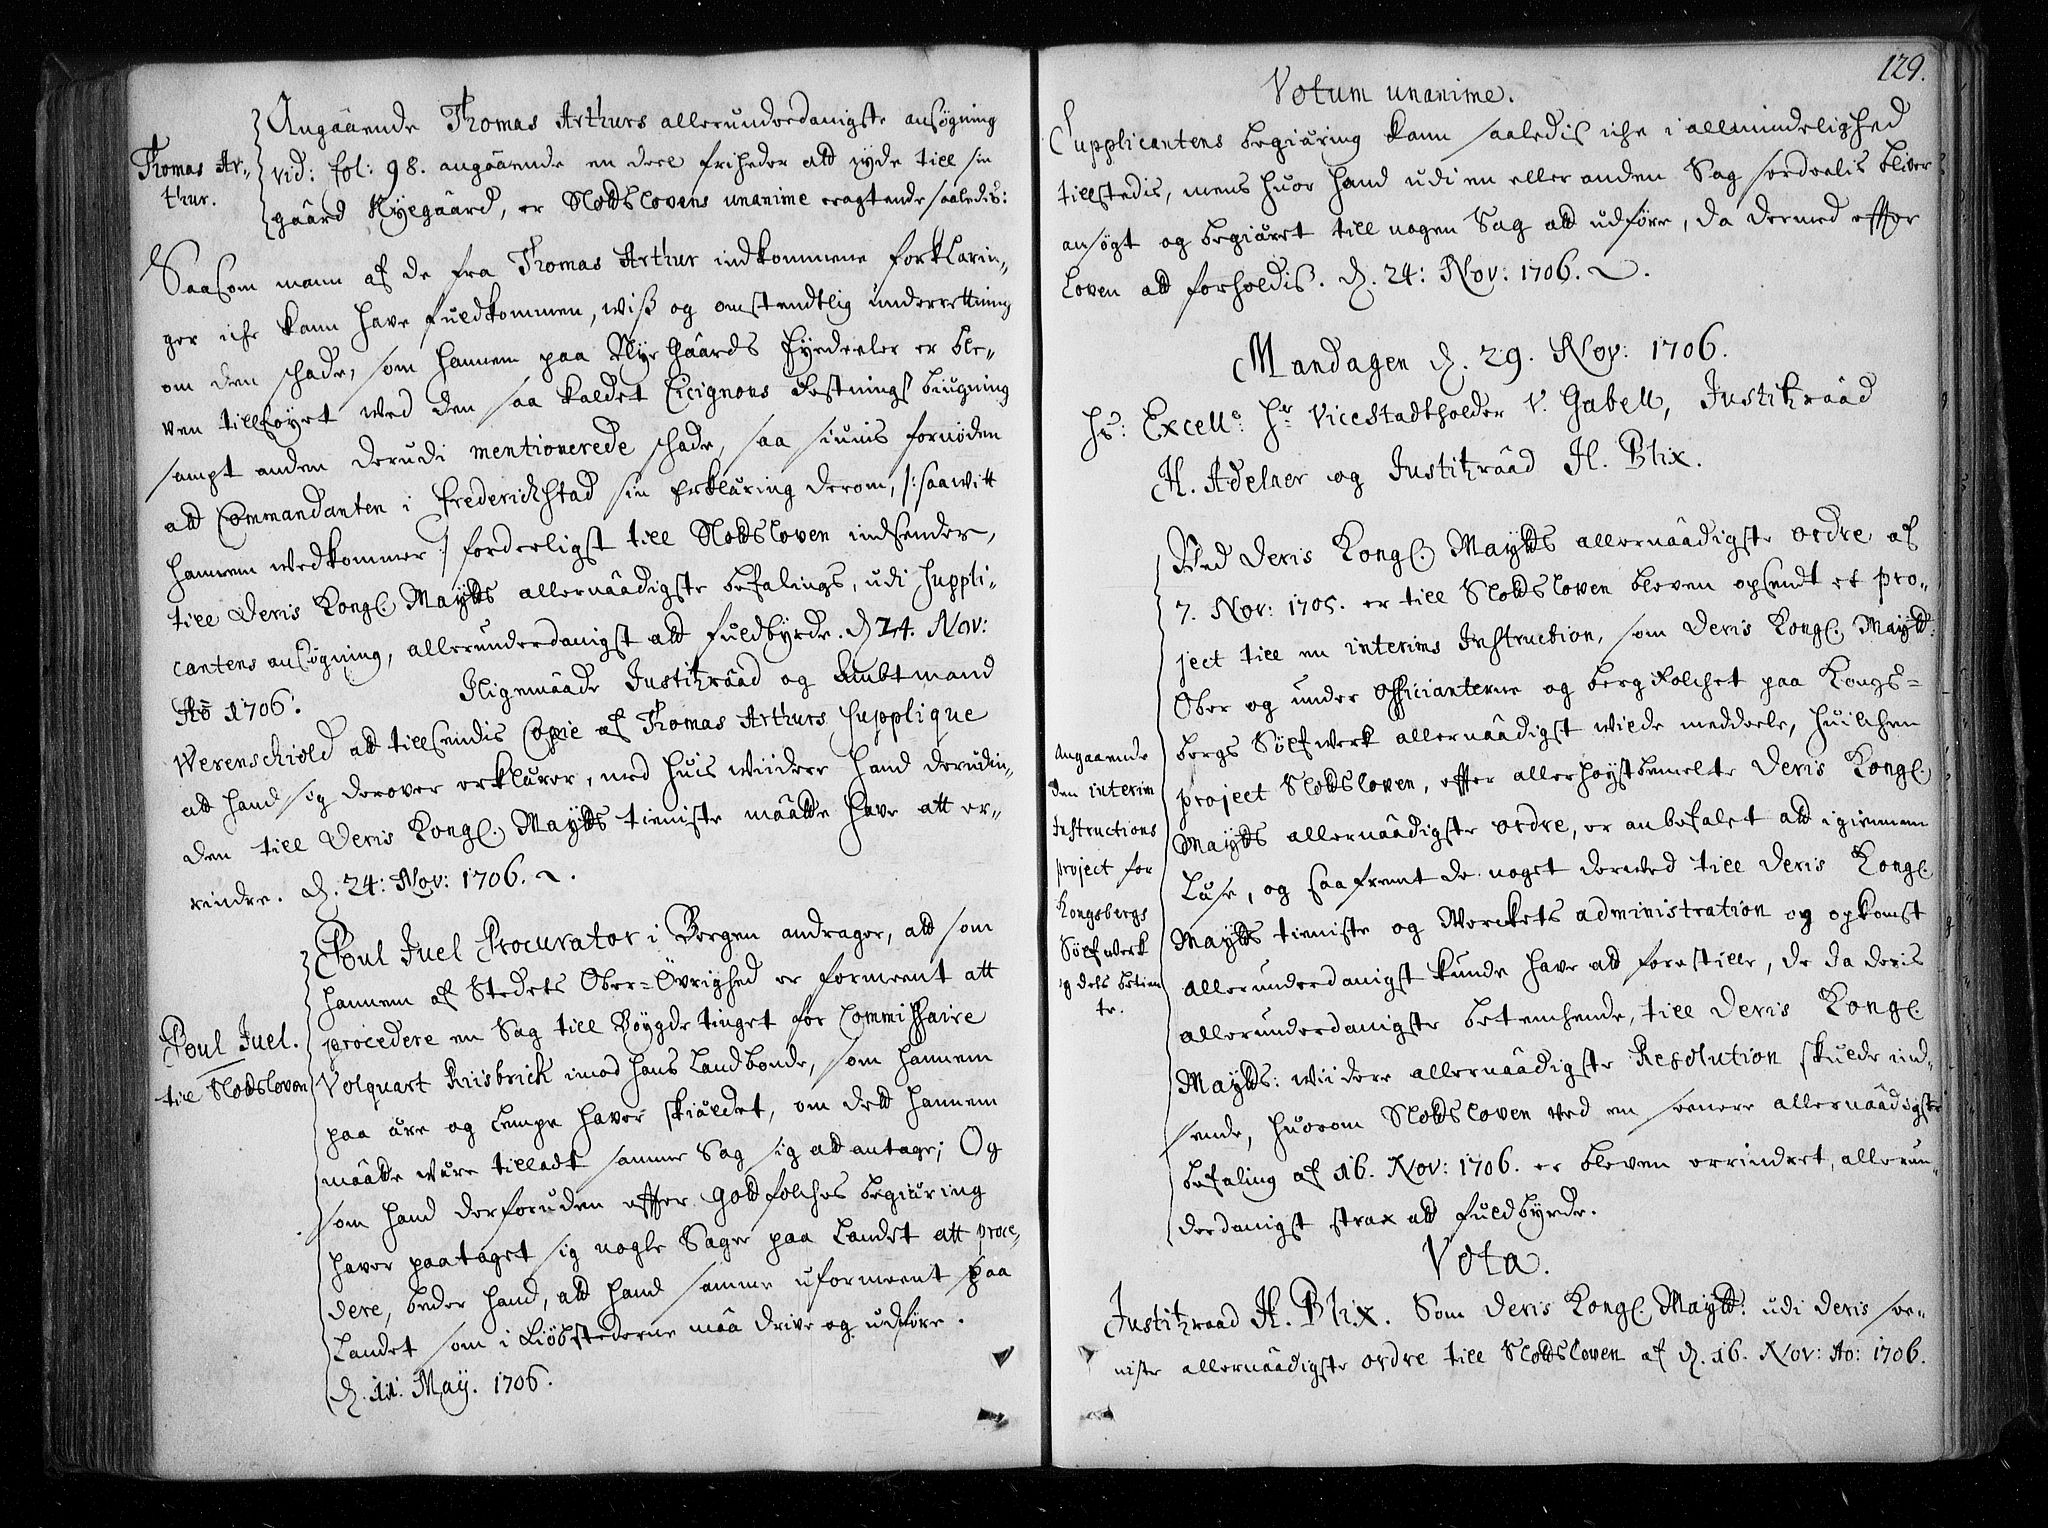 Thomas Ar-
thur.
Angaaende Thomas Arthurs allerunderdanigste ansøgning
vid: fol: 98. angaaende en deel friheder att nyde till sin
gaard Nyegaard, er Slodslovens unanime eragtende saaledis:
Saasom mann af de fra Thomas Arthur indkommene forklarin-
ger iche kann have fuldkommen, wiß og omstendtlig underrettning
om den schade, som hannem paa Nye Gaards Eyedeeler er ble-
ven tillføyet wed den saa kaldet Cicignons Festnings biugning
sampt anden derudi mentionerede schade, saa siunis fornøden
att Commandanten i Frederichstad sin Erklæring derom, /: saawitt
hannem wedkommer :/ forderligst till Slodsloven indsender,
till Deris Kongl. Maytts allernaadigste befalings, udi suppli-
cantens ansøgning, allerunderdanigst att fuldbyrde. d. 24. Nov:
Ao 1706. Iligemaade Justitzraad og Ambtmand
Werenschiold att tillsendis Copie af Thomas Arthurs Supplique
att hand sig derover erklærer, med huis wiidere hand derudin-
den till Deris Kongl. Maytts tieniste maatte have att er-
rindre. d. 24: Nov: 1706.
Poul Juel.
till Slodsloven
Poul Juel Procurator i Bergen andrager, att som
hannem af Stedets Ober-Øvrighed er formeent att
procedere en Sag till Bøygdetinget for Commissaire
Volquart Riisbrick imod hans Landbonde, som hannem
paa ære og lempe haver skiældet, om dett hannem
maatte være tilladt samme Sag sig att antage; Og
som hand derforuden effter godtfolches begiæring
haver paataget sig nogle Sager paa Landet att proce-
dere, beder hand, att hand samme uformeent saa paa
Landet som i Kiøbstederne maa drive og udføre.
d. 11. May. 1706.
129.
Votum unanime.
Supplicantens begiæring kann saaledis iche i allmindelighed
tillstedis, mens huor hand udi en eller anden Sag særdeelis bliver
ansøgt og begiæret till nogen Sag att udføre, da dermed effter
Loven att forholdis. d. 24: Nov: 1706.
Mandagen d. 29. Nov: 1706.
Hs: Excell: Hr Vicestadtholder v. Gabell, Justitzraad
H. Adelaer og Justitzraad H. Blix.
Angaaende
den interim
Instructions
project for
Kongsbergs
Sølfwerk
og dets betien
te.
Wed Deris Kongl. Maytts allernaadigste ordre af
7. Nov: 1705. er till Slodsloven bleven opsendt et pro-
ject till en interims Instruction, som Deris Kongl. Maytt:
Ober og under Officianterne og bergfolchet paa Kongs-
bergs Sølfwerk allernaadigst wilde meddeele, huilchen
project Slodsloven, effter allerhøystbemelte Deris Kongl.
Maytts allernaadigste ordre, er anbefalet att igiennem
Læse, og saa fremt de noget derwed till Deris Kongl.
Maytts tieniste og Werckets administration og opkomst
allerunderdanigst kunde have att forestille, de da deris
allerunderdanigste betenchende, till Deris Kongl.
Maytts: wiidere allernaadigste Resolution skulde ind-
sende, huorom Slodsloven ved en seenere allernaadigste
befaling af 16. Nov: 1706. er bleven errindret, allerun-
derdanigst strax att fuldbyrde.
Vota.
Justitzraad H. Blix. Som Deris Kongl. Maytt: udi Deris see-
niste allernaadigste ordre till Slodsloven af d. 16. Nov: Ao: 1706.